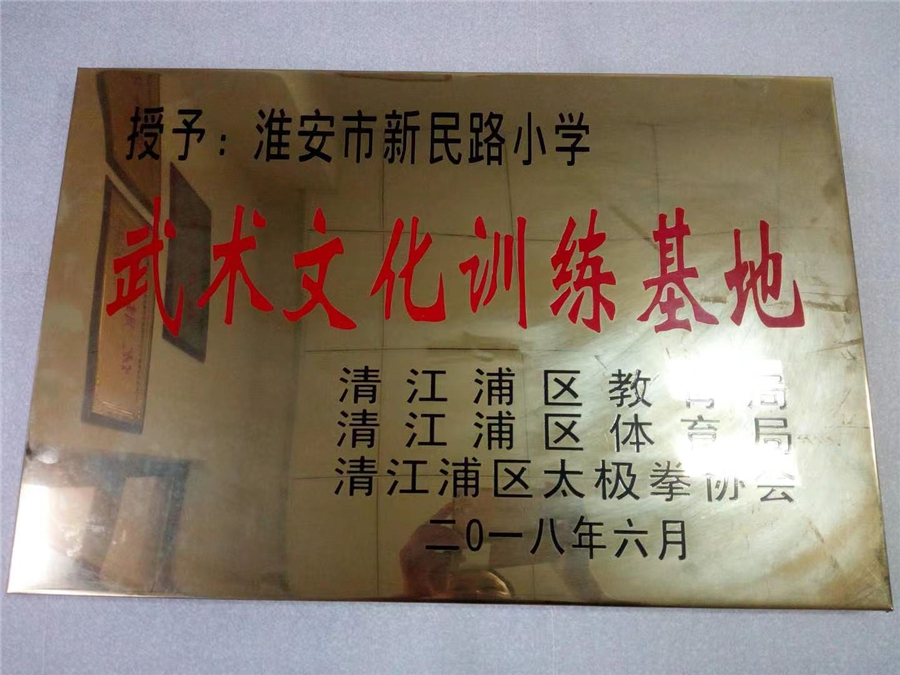 授予：淮安市新民路小学
武术文化训练基地
清江浦区教育局
清江浦区体育局
清江浦区太极拳协会
二0一八年六月